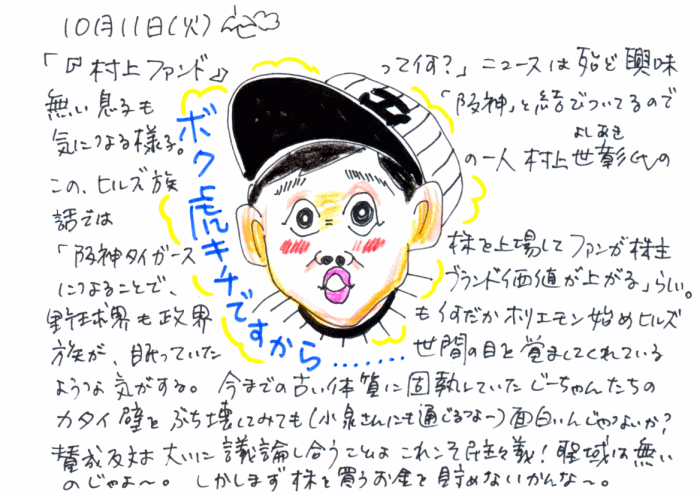 10月11日(火)
「『村上ファンド』って何?」ニュースは殆ど興味
無い息子も「阪神」と結びついてるので
気になる様子。
よしあき
この、ヒルズ族の一人村上世彰氏の
話では
「阪神タイガース株を上場してファンが株主
になることで、ブランド価値が上がる」らしい。
野球界も政界も何だかホリエモン始めヒルズ
族が、眠っていた世間の目を覚ましてくれている
ような気がする。今までの古い体質に固執していたじーちゃんたちの
カタイ壁をぶち壊してみても(小泉さんにも通じるなー)面白いんじゃないか?
賛成反対大いに議論し合うことよこれこそ民主々義!聖域は無い
のじゃよ〜。しかしまず株を買うお金を貯めないかんな〜。
ボク虎キチですから........